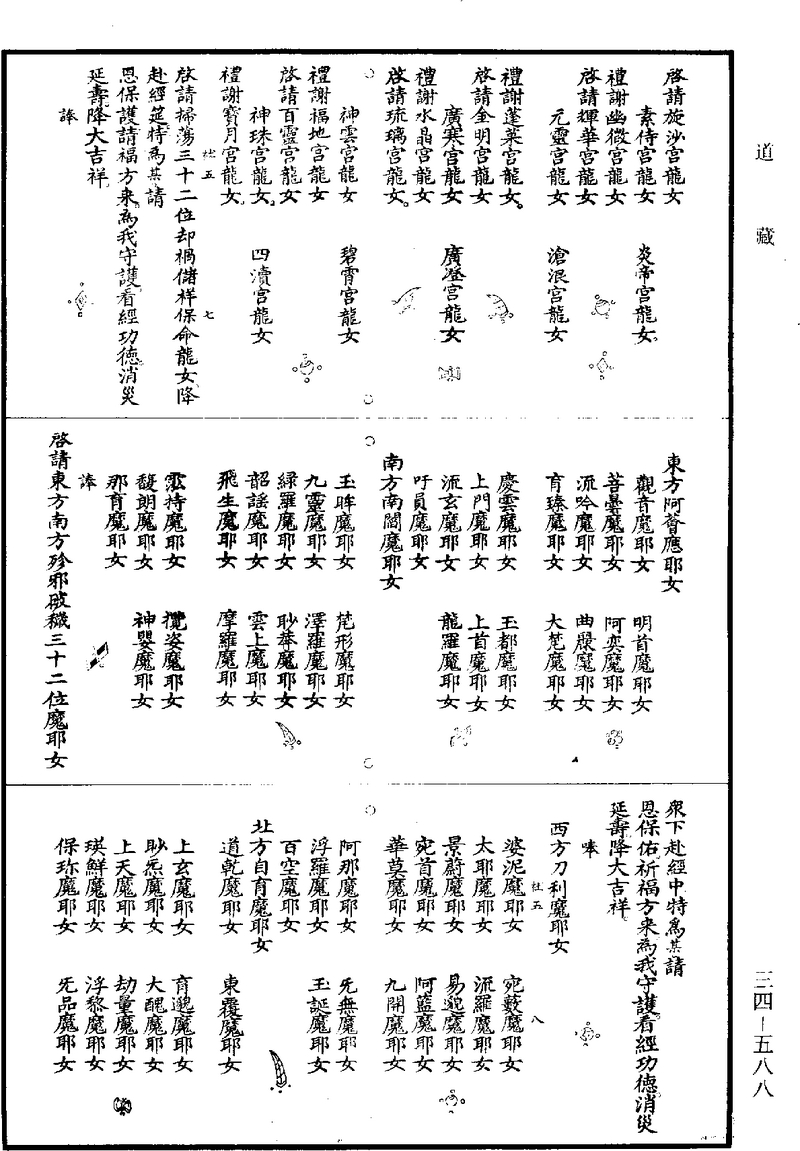 道藏
啓請旋沙宮龍女
素侍宮龍女　炎帝宮龍女
禮謝幽微宮龍女
啓請輝華宮龍女
元靈宮龍女　滄浪宮龍女
禮謝蓬萊宮龍女
啓請金明宮龍女
廣寒宮龍女　廣澄宮龍女
禮謝水晶宮龍女
啓請琉璃宮龍女
神雲宮龍女　碧霄宮龍女
禮謝福地宮龍女
啓請百靈宮龍女
神珠宮龍女　四瀆宮龍女
禮謝寶月宮龍女
杜五　七
啓請掃蕩三十二位却禍儲祥保命龍女降
赴經筵特為某請
恩保護請福方來為我守護看經功德消災
延壽降大吉祥
諱
東方阿奢應耶女
觀音魔耶女　明首魔耶女
菩曇魔耶女　阿奕魔耶女
流吟魔耶女　曲嚴魔耶女
育臻魔耶女　大梵魔耶女
慶雲魔耶女　玉都魔耶女
上門魔耶女　上首魔耶女
流玄魔耶女　龍羅魔耶女
吁員魔耶女
南方南閻魔耶女
玉眸魔耶女　梵形魔耶女
九靈魔耶女　澤羅魔耶女
綠羅魔耶女　眇莽魔耶女
韶謠魔耶女　雲上魔耶女
飛生魔耶女　摩羅魔耶女
持魔耶女　攬姿魔耶女
馥朗魔耶女　神嬰魔耶女
那育魔耶女
諱
啓請東方南方殄邪破穢三十二位魔耶女
衆下赴經中特為某請
恩保佑祈福方來為我守護看經功德消災
延壽降大吉祥
西方刀利魔耶女
杜五　八
婆泥魔耶女　宛藪魔耶女
太耶魔耶女　流羅魔耶女
景蔚魔耶女　易邈魔耶女
宛首魔耶女　阿藍魔耶女
華莫魔耶女　九開魔耶女
阿那魔耶女　旡無魔耶女
浮羅魔耶女　玉誕魔耶女
百空魔耶女
北方自育魔耶女
道乾魔耶女　東覆魔耶女
上玄魔耶女　育邈魔耶女
眇炁魔耶女　大醜魔耶女
上天魔耶女　劫量魔耶女
瑛鮮魔耶女　浮黎魔耶女
保珎魔耶女　旡品魔耶女
三四－五八八